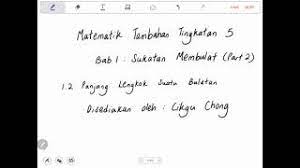 Matematik Tambahan Tingkatan 5
Bab 1 : Sukatan Membulat (Part 2)
1.2 Panjang Lengkok Suatu Bulatan
Disediakan oleh : Cikgu Chong